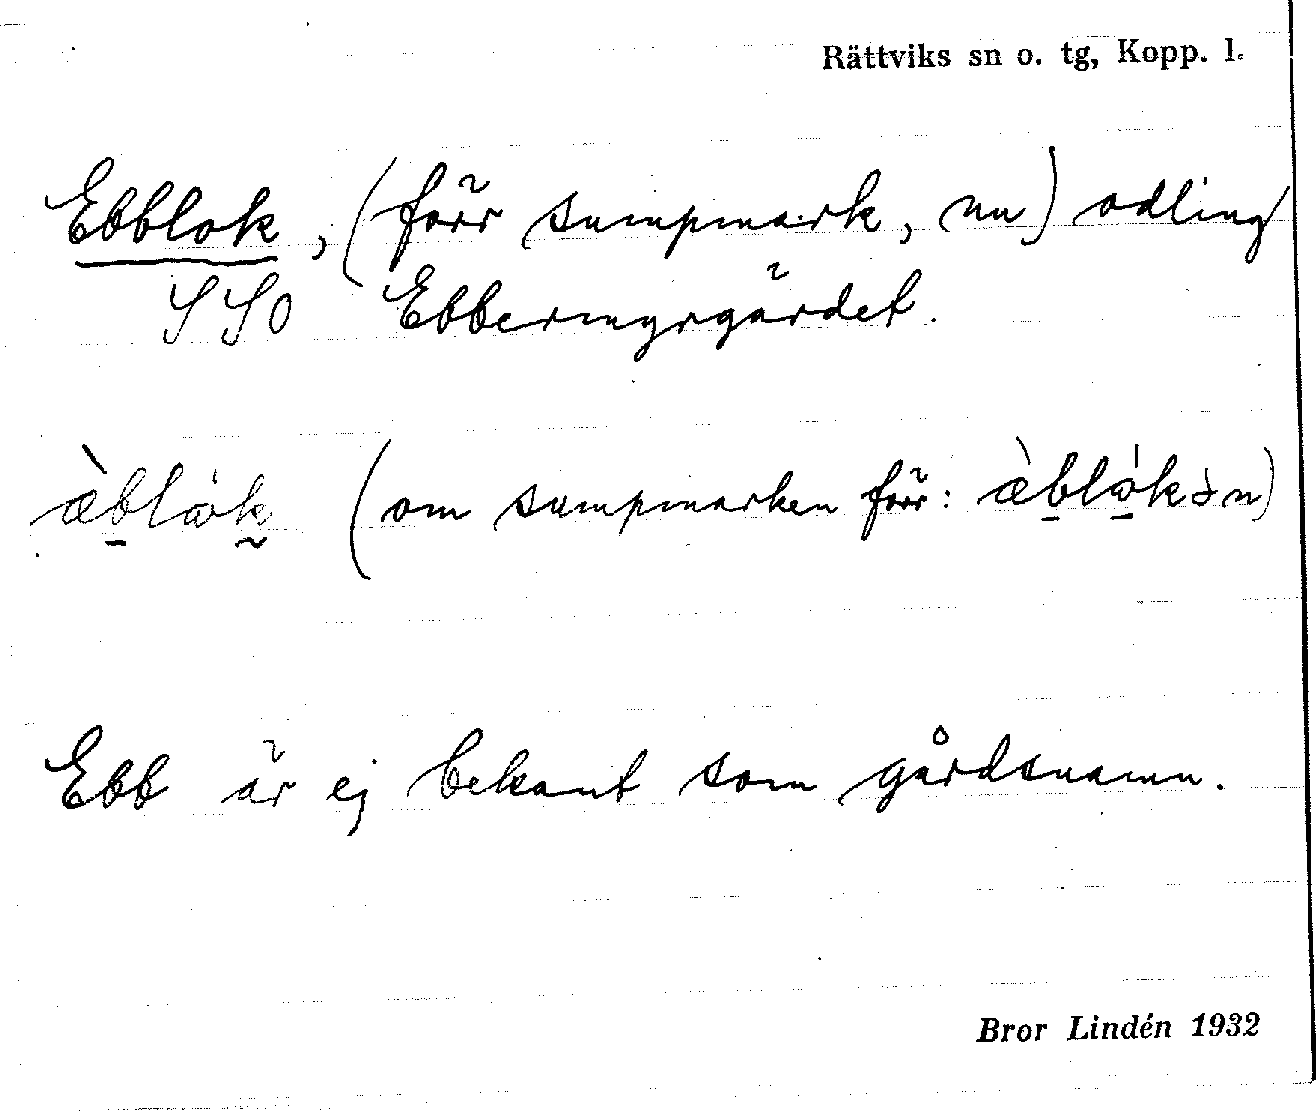 Rättviks sn o. tg, Kopp. l.
Ebblok, (förr sumpmark, nu) odling
SSO Ebbermyrgärdet.
(om sumpmarken förr:
Ebb är ej bekant som gårdsnamn.
Bror Lindén 1932